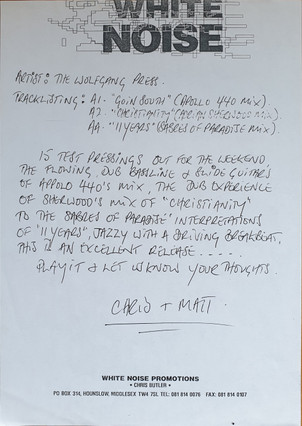 WHITE
NOISE
ARTIST: THE WOLFGANG PRESS.
TRACKLISTING: A1- "GOIN SOUTH" (APOLLO 440 MIX).
A2- "CHRISTIANITY" (ADRIAN SHERWOOD MIX).
AA- "11 YEARS" (SABRES OF PARADISE MIX).
15 TEST PRESSINGS OUT FOR THE WEEKEND.
THE FLOWING, DUB BASSLINE & SLIDE GUITARS
OF APPOLO 440'S MIX, THE DUB EXPERIENCE
OF SHERWOOD'S MIX OF "CHRISTIANITY"
TO THE SABRES OF PARADISE' INTERPRETATIONS
OF '11 YEARS", JAZZY WITH A DRIVING BREAKBEAT,
THIS IS AN EXCELLENT RELEASE.....
PLAY IT & LET US KNOW YOUR THOUGHTS.
+ MATT.
WHITE NOISE PROMOTIONS
• CHRIS BUTLER •
PO BOX 314, HOUNSLOW, MIDDLESEX TW4 7SL TEL: 081 814 0076 FAX: 081 814 0107